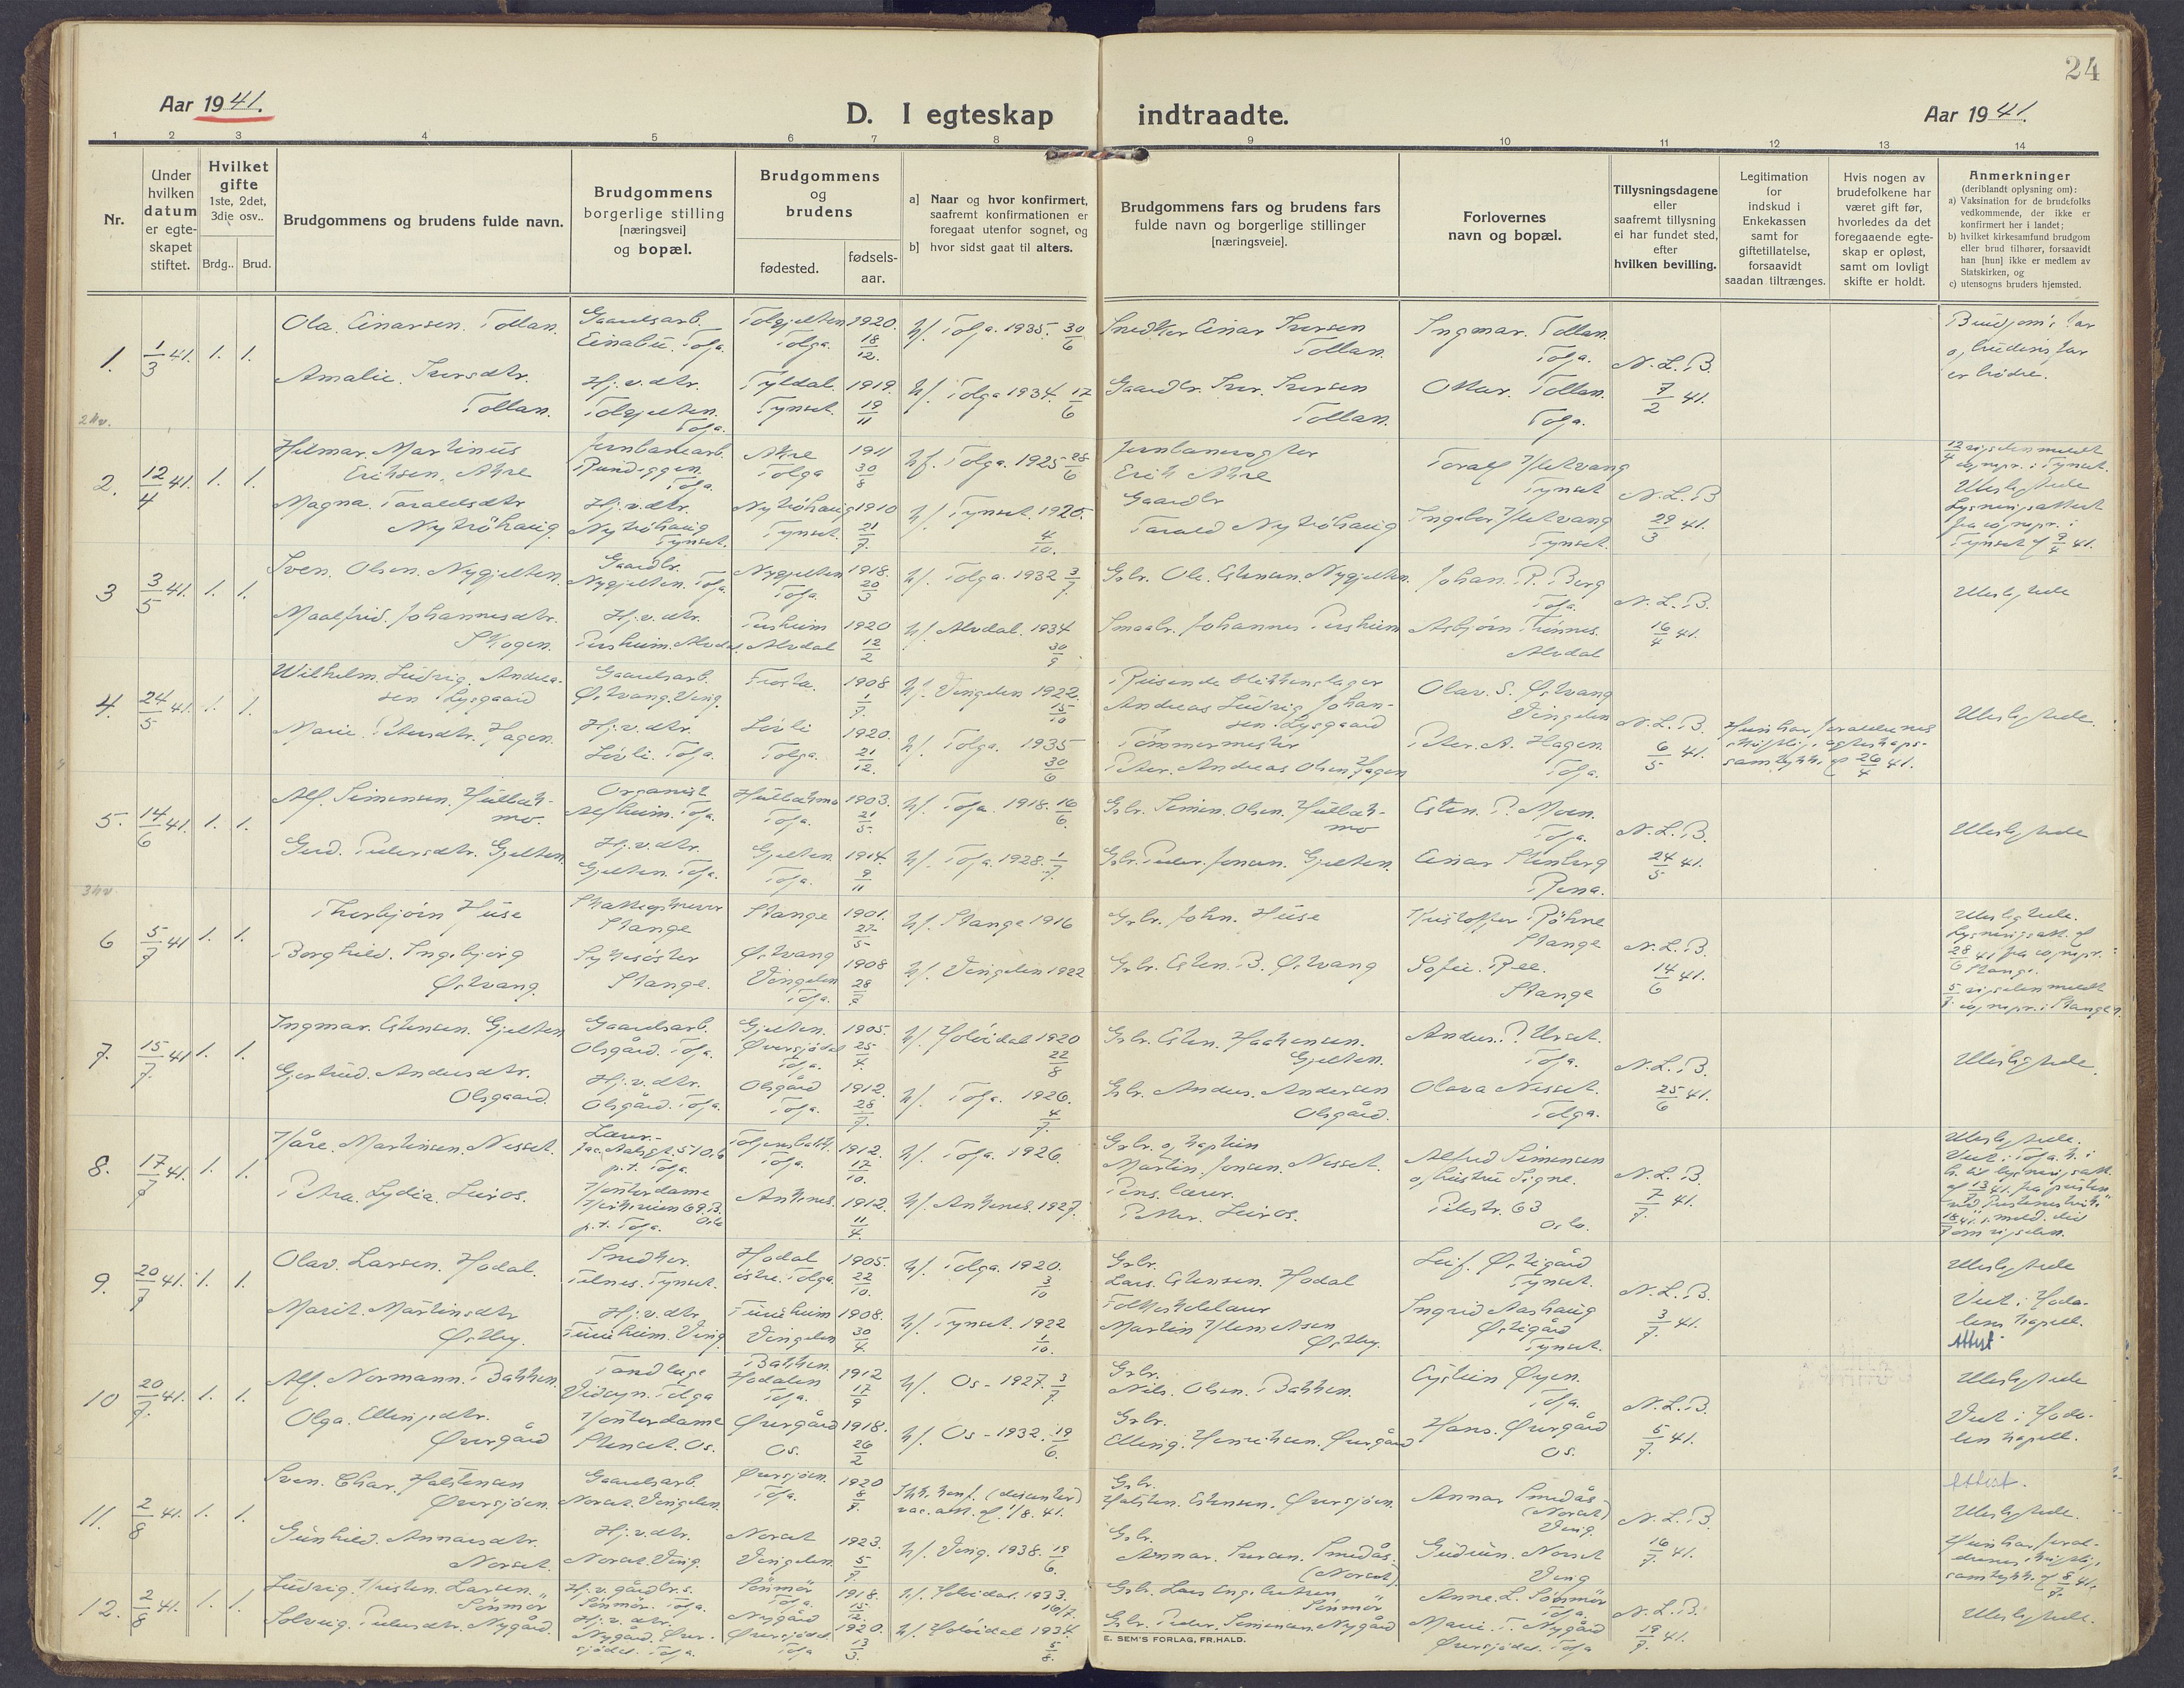 24
Aar 1941.
D. I egteskap indtraadte.
Aar 1941.
1 2 3 4 5 6 7 8 9 10 11 12 13 14
Nr.
Under hvilken datum er egteskapet stiftet.
Hvilket gifte 1ste, 2det, 3die osv..
Brdg.. Brud.
Brudgommens og brudens fulde navn.
Brudgommens borgerlige stilling [næringsvei] og bopæl.
Brudgommens og brudens
fødested.
fødsels-aar.
a] Naar og hvor konfirmert, saafremt konfirmationen er foregaat utenfor sognet, og
b] hvor sidst gaat til alters.
Brudgommens fars og brudens fars fulde navn og borgerlige stillinger [næringsveie].
Forlovernes navn og bopæl.
Tillysningsdagene eller saafremt tillysning ei har fundet sted, efter hvilken bevilling.
Legitimation for indskud i Enkekassen samt for giftetillatelse, forsaavidt saadan tiltrænges.
Hvis nogen av brudefolkene har været gift før, hvorledes da det foregaaende egteskap er opløst, samt om lovligt skifte er holdt.
Anmerkninger (deriblandt oplysning om):
a) Vaksination for de brudefolks vedkommende, der ikke er konfirmert her i landet;
b) hvilket kirkesamfund brudgom eller brud tilhører, forsaavidt han [hun] ikke er medlem av Statskirken, og
c) utensogns bruders hjemsted.
1. 1/3 41. 1. 1.
Ola. Einarsen. Tollan.
Gaardsarb. Einabu. Tolga.
Tolgjelten Tolga.
1920. 18/12.
kf. Tolga. 1935. 30/6
Snedker Einar Iversen Tollan.
Ingmar. Tollan. Tolga.
N.L.B. 7/2 41.
Brudgom's far og brudens far er brødre.
Amalie. Iversdtr. Tollan.
Hj.v.dtr. Tolgjelten. Tolga.
Tyldal. Tynset.
1919. 19/11
kf. Tolga 1934. 17/6
Gaardbr. Iver. Iversen Tollan.
Ottar. Tollan. Tolga.
2. 12/4 41. 1. 1.
Hilmar. Martinus Eriksen. Akre
Jernbanearb. Tolga.
Akre Tolga
1911 30/8
kf. Tolga. 1925 28/6
Jernbanevogter Erik Akre
Toralf Tynset
N.L.B 29/3 41.
12/4 vigselen meldt sognepr. i Tynset.
Ubeslegtede
Lysningsattest fra sognepr. i Tynset af 9/4 41.
Magna. Taraldsdtr. Nytrøhaug.
Hj.v.dtr. Nytrøhaug Tynset.
Nytrøhaug Tynset.
1910 21/7.
kf. Tynset. 1925. 4/10.
Gaardbr Tarald Nytrøhaug
Tynset.
3 3/5 41. 1. 1.
Sven. Olsen. Nygjelten.
Gaardbr. Nygjelten. Tolga.
Nygjelten Tolga.
1918. 20/3
kf. Tolga. 1932 3/7
Gbr. Ole. Estensen. Nygjelten.
Johan. P. Berg Tolga.
N.L.B. 16/4 41.
Ubeslegtede
Maalfrid. Johannesdtr. Skogen.
Hj.v.dtr. Persheim. Alvdal.
Persheim Alvdal
1920 12/2
kf. Alvdal. 1934 30/9
Smaabr. Johannes Persheim
Asbjørn Trønnes. Alvdal
4. 24/5 41. 1. 1.
Wilhelm. Ludvig. Andreasen. Lysgaard
Gaardsarb. Østvang. Ving.
Frosta.
1908 1/7.
kf. Vingelen 1922. 15/10
Reisende blikkenslager Andreas Ludvig Johansen. Lysgaard
Olav. S. Østvang Vingelen
N.L.B. 6/5 41.
Hun har foreldrenes skriftlig. egteskaps-samtykke af 26/4 41.
Ubeslegtede.
Marie. Petersdtr. Hagen.
Hj.v.dtr. Løvli. Tolga.
Løvli Tolga.
1920. 21/12.
kf. Tolga. 1935 30/6
Tømmermester Peter. Andreas Olsen Hagen
Peter. A. Hagen. Tolga.
5. 14/6 41. 1. 1.
Alf. Simensen. Hulbækmo.
Organist Tolga.
Hulbækmo Tolga.
1903. 21/5.
kf. Tolga. 1918. 16/6.
Gbr. Simen. Olsen. Hulbækmo
Esten. P. Moen. Tolga.
N.L.B. 24/5 41.
Ubeslegtede
Gerd. Pedersdtr. Gjelten.
Hj.v.dtr. Gjelten. Tolga.
Gjelten. Tolga.
1914. 9/11
kf. Tolga. 1928. 1/7.
Gbr. Peder. Jonsen. Gjelten.
Einar Stenberg Rena.
6 5/7 41 1. 1.
Thorbjørn Huse
Stange
Stange
1901. 22/5.
kf. Stange 1916
Gbr. John. Huse
Kristoffer Røhne Stange
N.L.B. 14/6 41.
Ubeslegtede.
Lysningsatt. af 28/6 41 fra sognepr. i Stange.
5/7. vigselen meldt sognepr. i Stange.
Borghild. Ingebjørg Østvang.
Sykesøster Stange.
Østvang Vingelen Tolga.
1908 28/9
kf. Vingelen 1922
Gbr. Esten. B. Østvang
Sofie. Ree. Stange
7. 15/7. 41 1. 1.
Ingmar. Estensen. Gjelten
Gaardsarb. Olsgård. Tolga.
Gjelten. Øversjødal Tolga.
1905. 25/4.
kf. Holøidal 1920 22/8
Gbr. Esten. Haakensen. Gjelten.
Anders. P. Urset. Tolga.
N.L.B. 25/6 41.
Ubeslegtede.
Gjertrud. Andersdtr. Olsgaard.
Hj.v.dtr. Olsgård. Tolga.
Olsgård Tolga.
1912. 28/7.
kf. Tolga. 1926. 4/7.
Gbr. Anders. Andersen Olsgård.
Olava Nesset. Tolga.
8. 17/7 41. 1. 1.
Kåre. Martinsen. Nesset.
Lærer. Jac. Aalsgt. 51 Oslo p.t. Tolga.
Tolga.
1912. 17/10.
kf. Tolga. 1926.
Gbr. og kaptein Martin. Jonsen. Nesset.
Alfred Simensen og hustru Signe. Pilestr. 63 Oslo.
N.L.B. 7/7. 41.
Ubeslegtede.
Petra. Lydia. Leiros.
Kontordame p.t. Tolga.
Ankenes.
1912. 11/4
kf. Ankenes. 1927.
Pens. lærer. Petter. Leiros.
9. 20/7 41. 1. 1.
Olav. Larsen. Hodal.
Snedker. Telnes. Tynset.
Hodal østre. Tolga
1905. 22/10.
kf. Tolga. 1920. 3/10
Gbr. Lars. Estensen. Hodal
Leif. Østigård Tynset.
N.L.B. 3/7. 41.
Ubeslegtede
Viet i Hodalen kapell.
Attest.
Marit. Martinsdtr Østby.
Hj.v.dtr. Furuheim. Ving.
Furuheim Vingelen
1908. 30/4
kf. Tynset. 1922 1/10.
Martin Østby.
Ingrid Aashaug Østigård Tynset.
10 20/7. 41. 1. 1.
Alf. Normann. Bakken.
Tandlæge Tolga
Bakken. Hodalen Tolga.
1912 17/9
kf. Os - 1927. 3/7.
Gbr. Nils. Olsen. Bakken.
Eystein Øyen. Tolga.
N.L.B. 5/7. 41.
Ubeslegtede
Viet i Hodalen kapell.
Olga. Ellingsdtr. Øvergård
Kontordame Os.
Øvergård Os.
1918. 26/2
kf. Os - 1932. 19/6.
Gbr. Elling. Henriksen. Øvergård
Hans. Øvergård Os.
11. 2/8 41. 1. 1.
Sven. Char. Halstensen Øversjøen.
Gaardsarb. Norset. Vingelen.
Øversjøen. Tolga.
1920 8/7
Ikke konf. (dissenter) vac. att. af. 1/8. 41.
Gbr. Halsten. Estensen. Øversjøen.
Annar Smedås (Norset) Ving.
N.L.B. 16/7. 41.
Attest.
Ubeslegtede.
Hun har foreldrenes skriftlig samtykke af 8/7. 41.
Gunhild. Annarsdtr. Norset.
Hj.v.dtr. Norset. Ving.
Norset Vingelen
1923. 5/7
kf. Ving. 1938. 19/6.
Gbr. Annar. Iversen. Smedås. (Norset)
Gudrun. Norset Ving
12. 2/8 41. 1. 1.
Ludvig. Kristen. Larsen. Sønmør
Hj.v. gårdbr.s. Sønmør. Tolga.
Sønmør Tolga.
1918. 15/12.
kf. Holøidal. 1933. 16/7.
Gbr. Lars Engebretsen Sønmør
Anne. L. Sønmør Tolga.
N.L.B. 19/7. 41.
Ubeslegtede.
Solveig. Pedersdtr. Nygård.
Hj.v.dtr. Nygård. Øversjødal. Tolga.
Nygård Øversjødal Tolga
1920. 13/3.
kf. Holøidal 1934. 5/8.
Gbr. Peder. Simensen. Nygård
Marie. T. Nygård Øversjødal. Tolga
E. SEM'S FORLAG, FR.HALD.